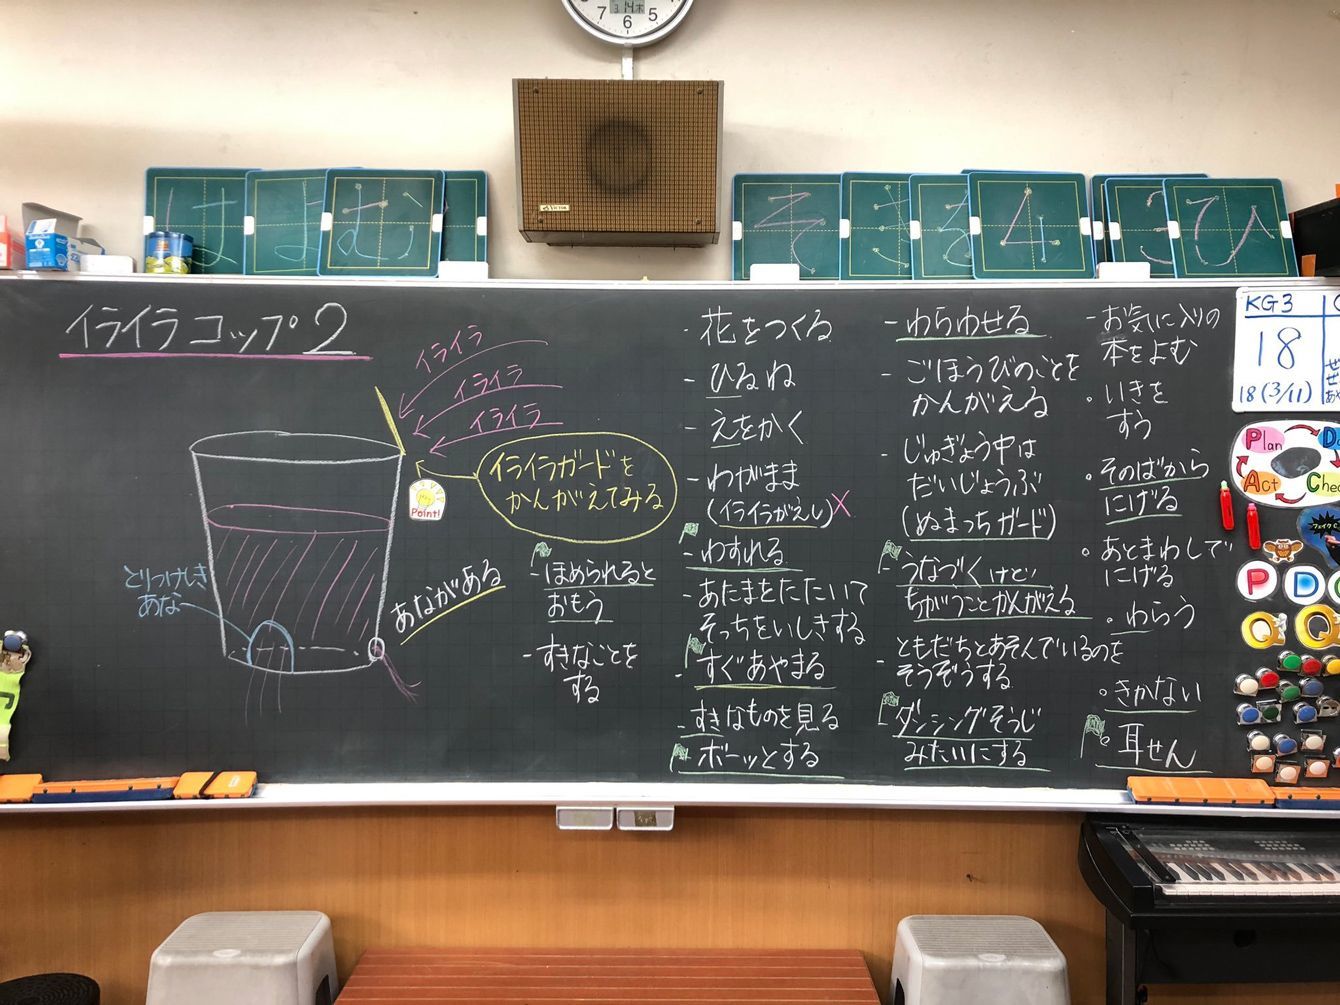 7 6 5
3 14 木
VICTOR
は
ま
む
そ
そ
る
4
ひ
イライラコップ2
イライラ
イライラ
イライラ
イライラガードを
かんがえてみる
Point!
とりつけしき
あな
あながある
- ほめられると
おもう
- すきなことを
する
- 花をつくる
- ひるね
- えをかく
- わがまま
(イライラがえし)×
- わすれる
- あたまをたたいて
そっちをいしきする
- すぐあやまる
- すきなものを見る
- ボーッとする
- わらわせる
- ごほうびのことを
かんがえる
- じゅぎょう中は
だいじょうぶ
(ぬまっちガード)
- うなづくけど
ちがうことかんがえる
- ともだちとあそんでいるのを
そうぞうする
- ダンシングそうじ
みたいにする
- お気に入りの
本をよむ
・いきを
すう
・そのばから
にげる
・あとまわしで
にげる
・わらう
・きかない
・耳せん
KG3
18
18(3/11)
Plan
Act
P D
Q Q